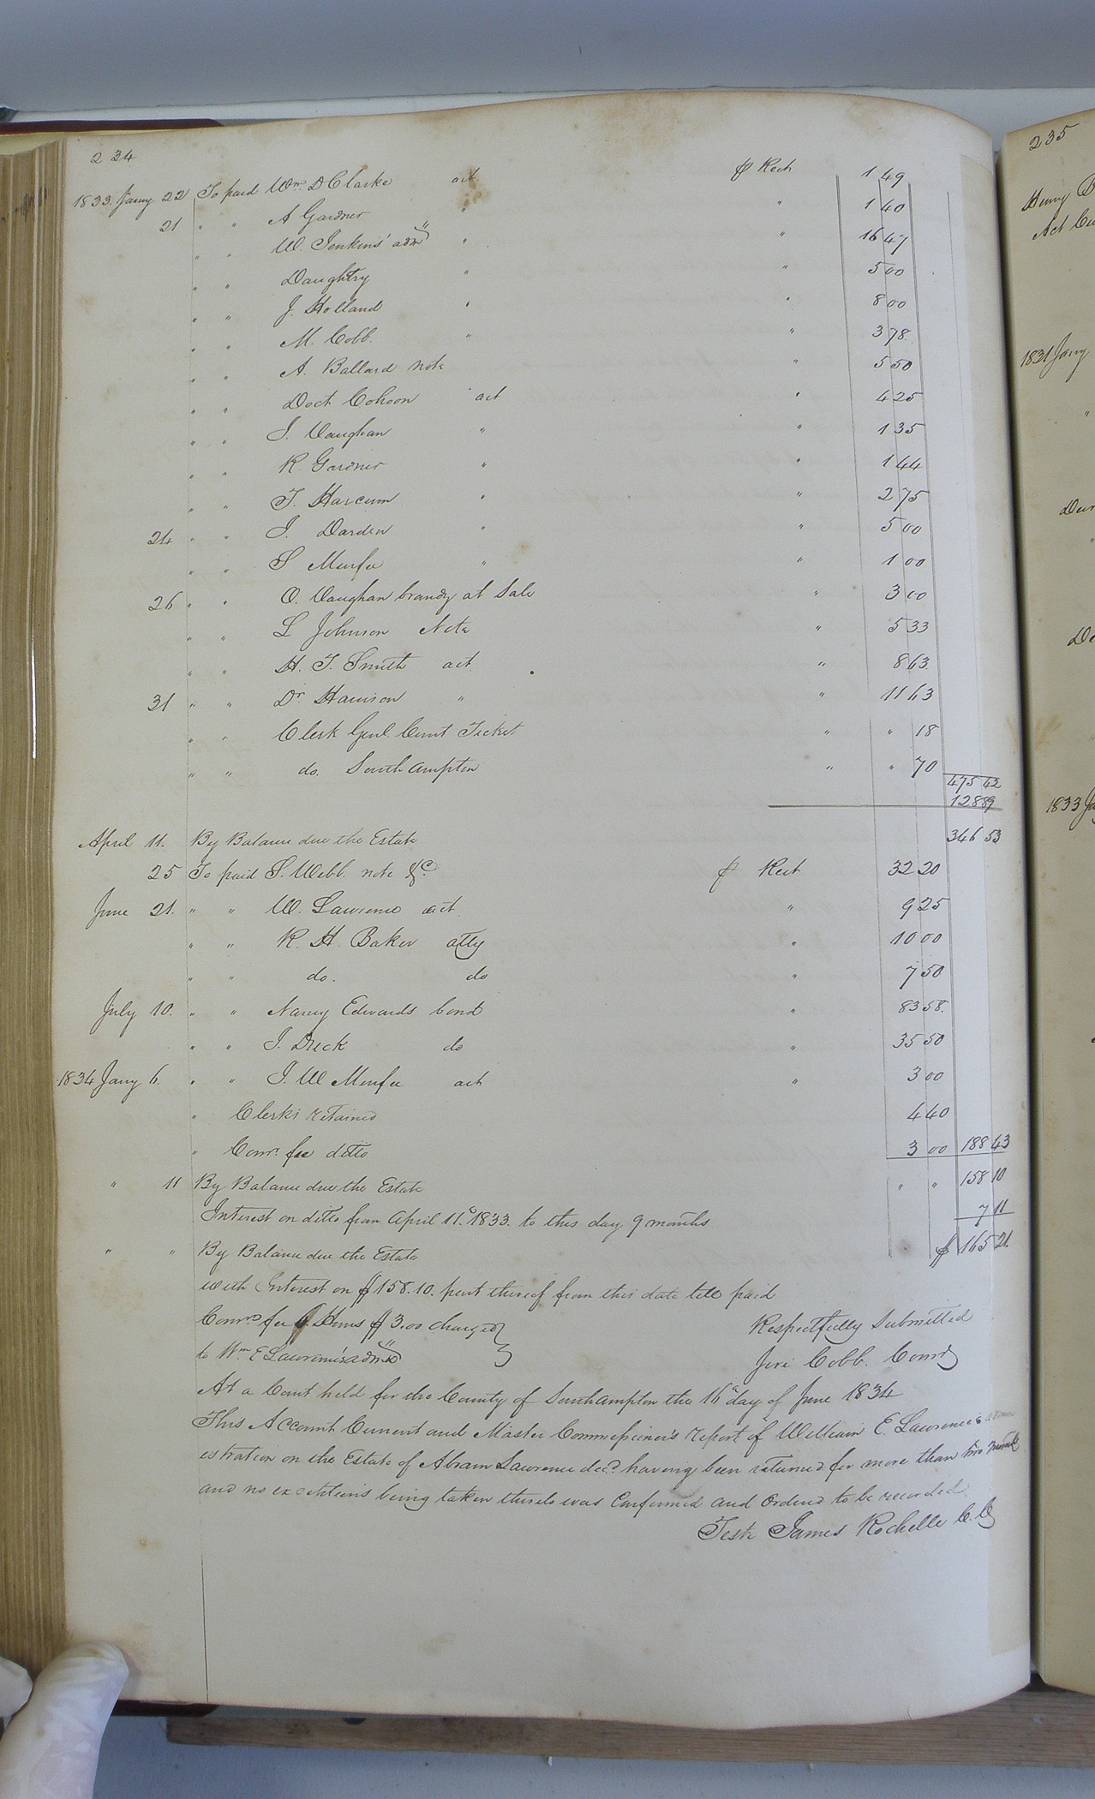 234
1833 Jany 22 To paid Wm D Clarke act ⅌ Rect 1 49
21 " " A Gardner " " 1 40
" " W. Jenkins' adm " " 16 47
" " Daughtry " " 5 00
" " J. Holland " " 8 00
" " M. Cobb. " " 3 78
" " A. Ballard note " 5 50
" " Doct Cohoon act " 4 25
" " J. Vaughan " " 1 35
" " R Gardner " " 1 44
" " T. Harcum " " 2 75
24 " " J. Darden " " 5 00
" " S Murfee " " 1 00
26 " " O. Vaughan brandy at Sale " 3 00
" " L Johnson Note " 5 33
" " H. T. Smith act " 8 63
31 " " Dr Harrison " " 11 63
" " Clerk Genl. Court Ticket " " 18
" " do. Southampton " " 70 475 42
128 89
April 11. By Balance due the Estate 346 53
25 To paid S. Webb note &c. ⅌ Rect 32 20
June 21. " " W. Lawrence act " 9 25
" " R. H. Baker atty " 10 00
" " do. do " 7 50
July 10. " " Nancy Edwards bond " 83 58
" " J. Duck do " 35 50
1834 Jany 6. " " J. W Murfee act " 3 00
" Clerks retained 4 40
" Comr. fee ditto 3 00 188 43
" 11 By Balance due the Estate " " 158 10
Interest on ditto from April 11th 1833. to this day 9 months 7 11
" " By Balance due the Estate $ 165 21
with Interest on $158.10. part thereof from this date till paid
Comrs fee 6 Hours $3.00 charged
to Wm E Lawrence's admr
Respectfully Submitted
Jere Cobb. Comr
At a Court held for the County of Southampton the 16th day of June 1834
This Account Current and Master Commissioner's report of William E. Lawrence's admin
istration on the Estate of Abram Lawrence decd. having been returned for more than two months
and no exceptions being taken thereto was Confirmed and Ordered to be recorded.
Teste James Rochelle C. C.
235
Henry
Act Cu
1831 Jany
"
1833 Ja